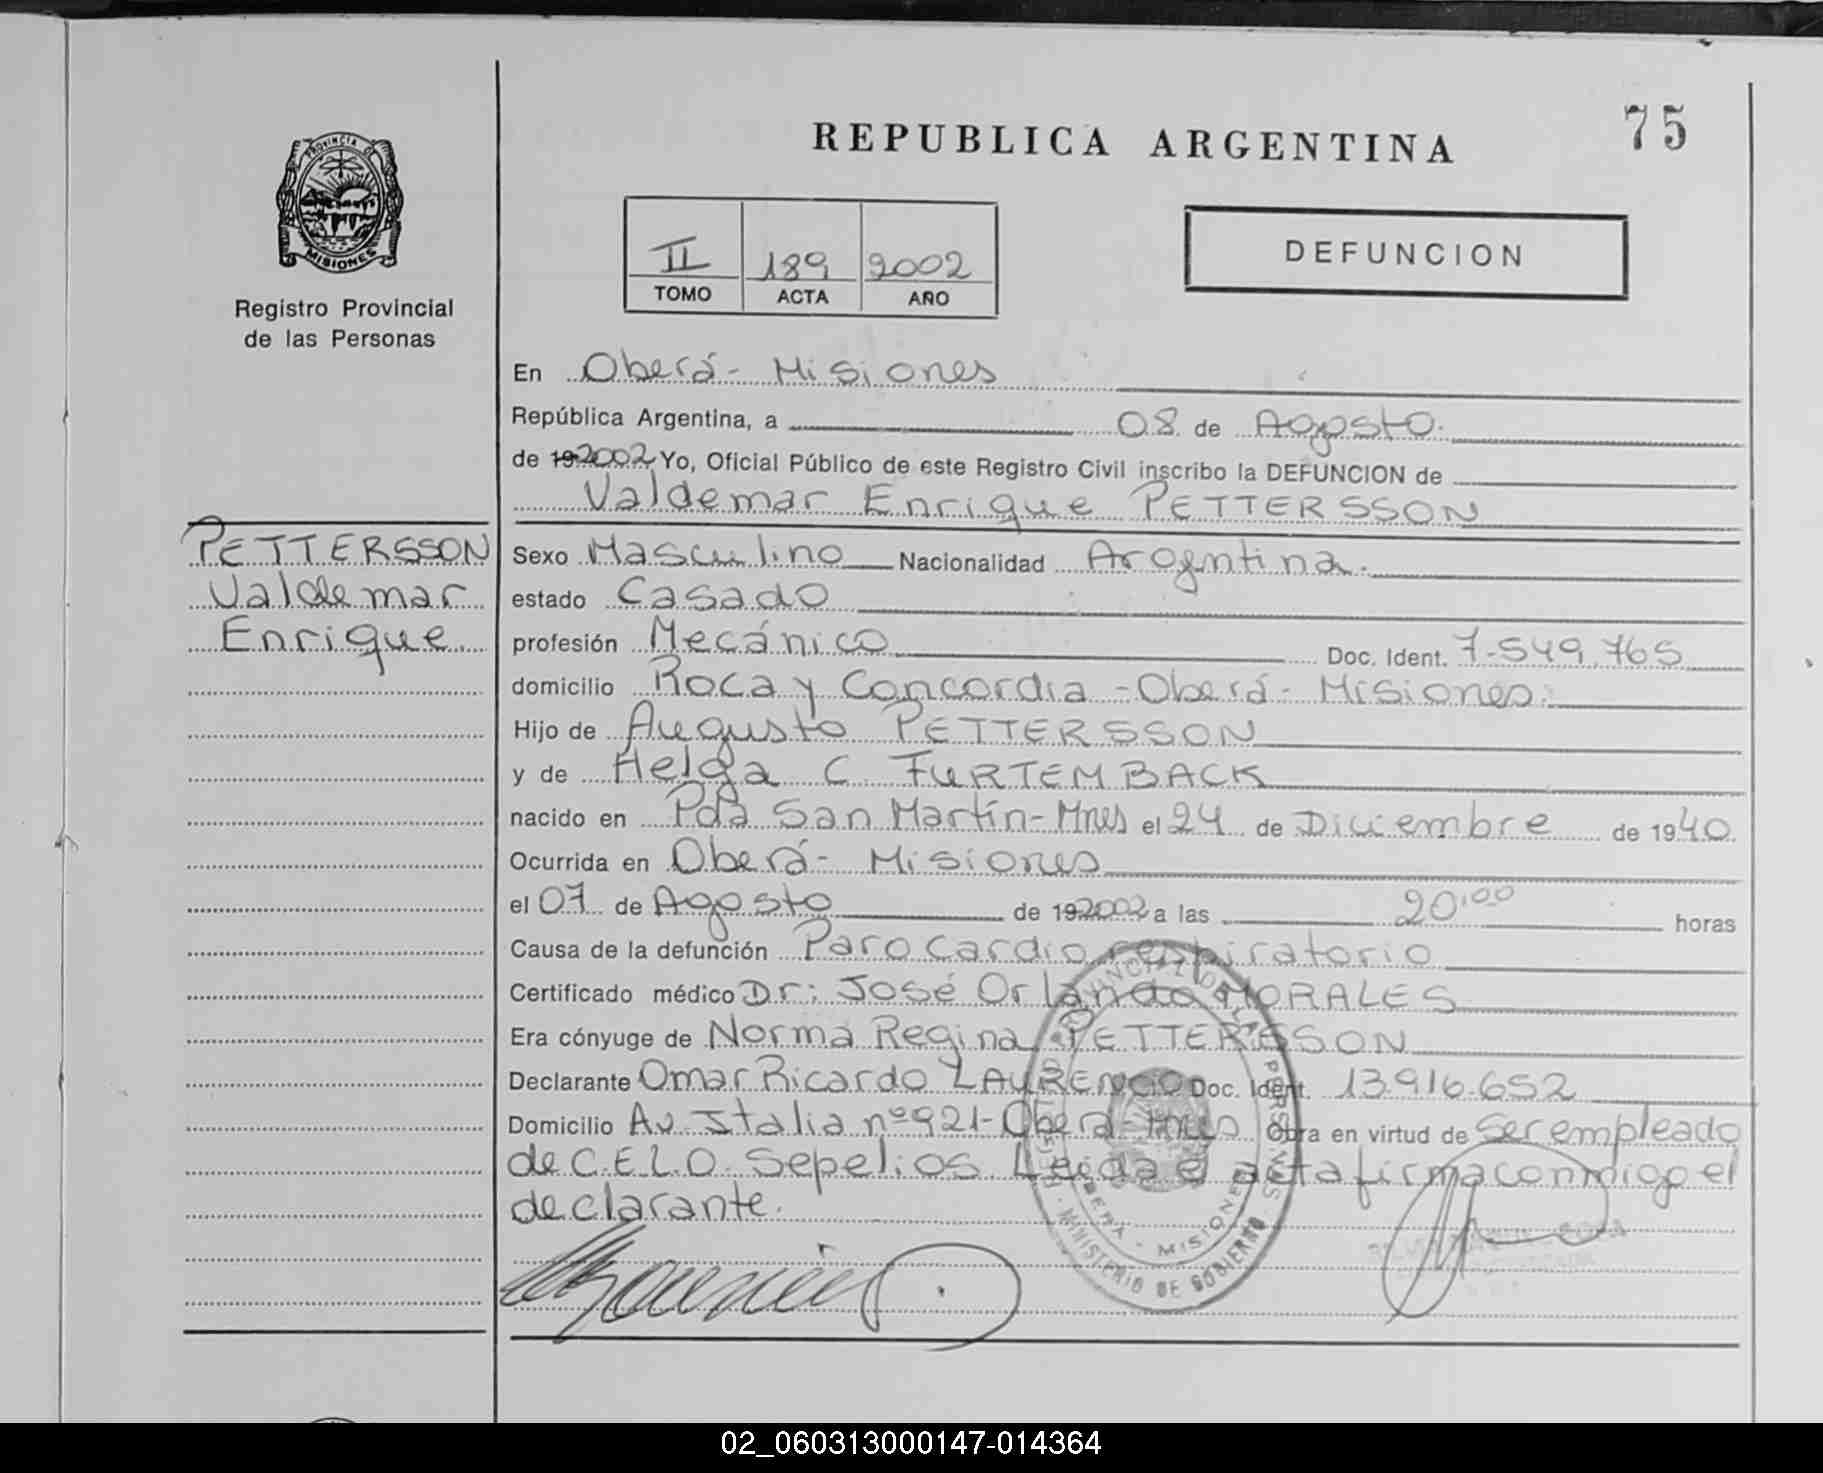 75
REPUBLICA ARGENTINA
PROVINCIA DE
MISIONES
Registro Provincial
de las Personas
II 189 2002
TOMO ACTA AÑO
DEFUNCION
En Oberá - Misiones
República Argentina, a 08 de Agosto.
de 192002 Yo, Oficial Público de este Registro Civil inscribo la DEFUNCION de
Valdemar Enrique PETTERSSON
PETTERSSON
Valdemar
Enrique.
Sexo Masculino Nacionalidad Argentina.
estado Casado
profesión Mecánico Doc. Ident. 7.549.765
domicilio Roca y Concordia - Oberá - Misiones.
Hijo de Augusto PETTERSSON
y de Helga C. FURTEMBACK
nacido en Pda San Martín - Mnes el 24 de Diciembre de 1940.
Ocurrida en Oberá - Misiones
el 07 de Agosto de 192002 a las 20,00 horas
Causa de la defunción Paro cardio respiratorio
Certificado médico Dr: José Orlando MORALES
Era cónyuge de Norma Regina PETTERSSON
Declarante Omar Ricardo LAURENCIO Doc. Ident. 13.916.652
Domicilio Av. Italia nº 921 - Oberá - Mnes Obra en virtud de Ser empleado
de C.E.L.O. Sepelios. Leida el acta firma conmigo el
declarante.
OBERA - MISIONES
MINISTERIO DE GOBIERNO
02_060313000147-014364